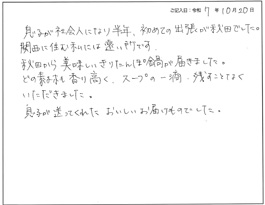 ご記入日：令和 7年10月20日
息子が社会人になり半年、初めての出張が秋田でした。
関西に住む私には遠い所です。
秋田から美味しいきりたんぽ鍋が届きました。
どの素材も香り高く、スープの一滴も残すことなく
いただきました。
息子が送ってくれたおいしいお届けものでした。